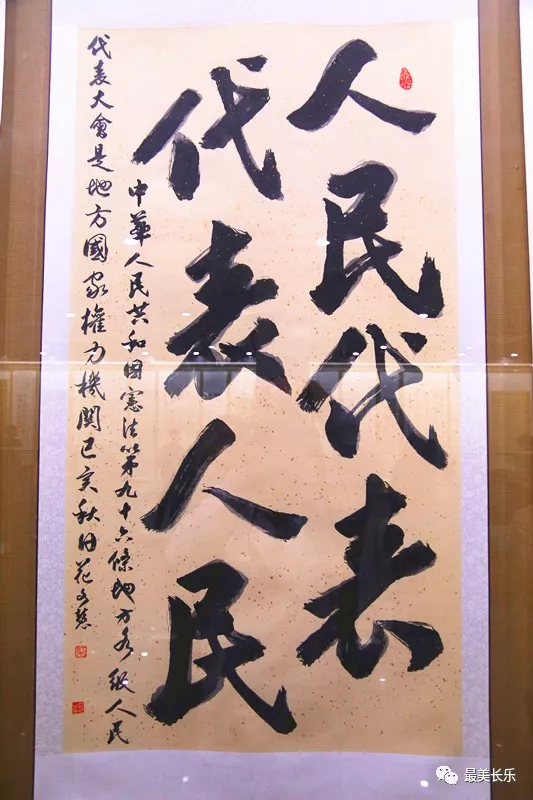 人民代表
代表人民
中華人民共和国憲法第九十六條地方各級人民
代表大會是地方國家權力機関己亥秋日花文慧
最美长乐